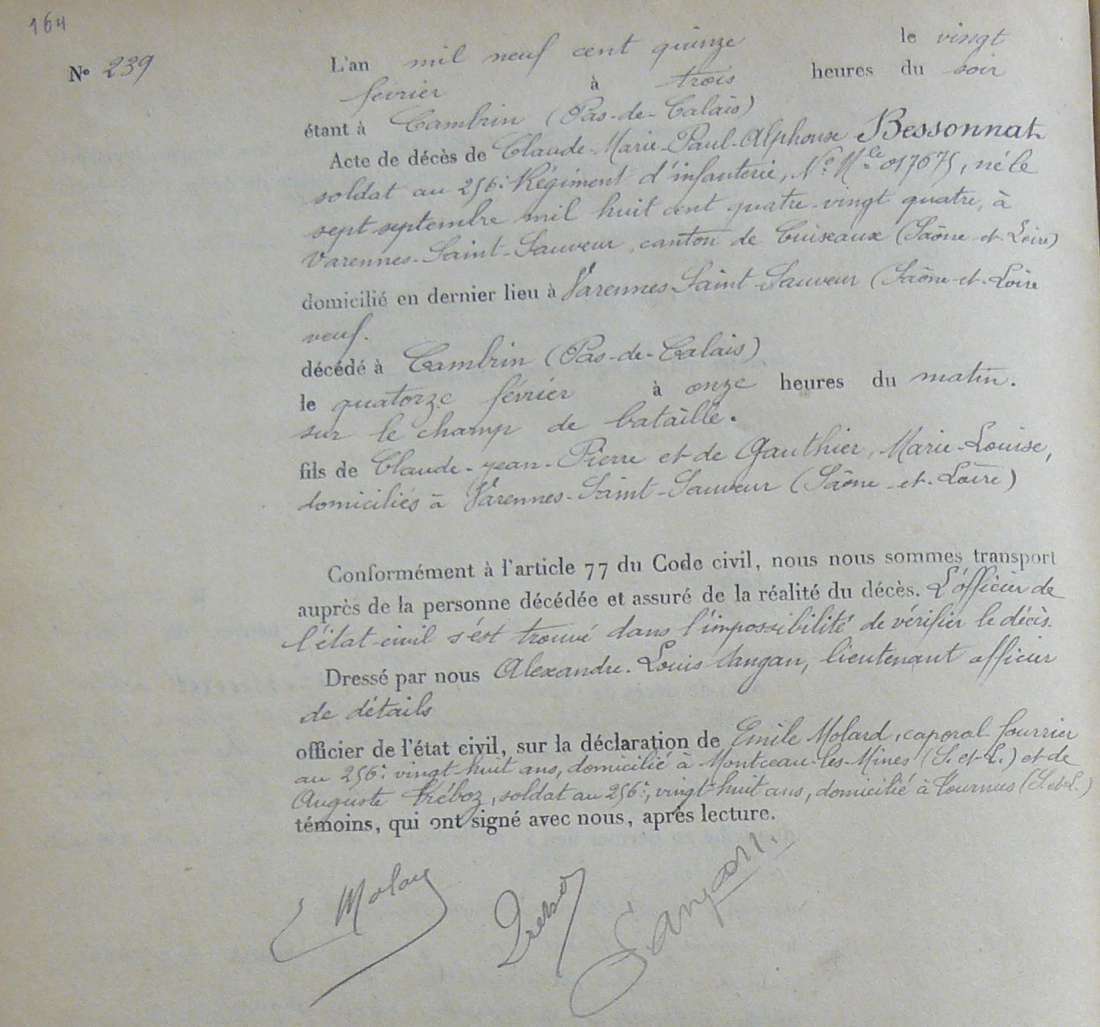 164
N° 239
L'an mil neuf cent quinze le vingt
février à trois heures du soir
étant à Cambrin (Pas-de-Calais)
Acte de décès de Claude-Marie-Paul-Alphonse Bessonnat
soldat au 256e Régiment d'infanterie, N° Mle 017675, né le
sept septembre mil huit cent quatre-vingt quatre, à
Varennes-Saint-Sauveur, canton de Cuiseaux (Saône-et-Loire)
domicilié en dernier lieu à Varennes-Saint-Sauveur (Saône-et-Loire
veuf.
décédé à Cambrin (Pas-de-Calais)
le quatorze février à onze heures du matin.
sur le champ de bataille.
fils de Claude-Jean-Pierre et de Gauthier, Marie-Louise,
domiciliés à Varennes-Saint-Sauveur (Saône-et-Loire)
Conformément à l'article 77 du Code civil, nous nous sommes transport
auprès de la personne décédée et assuré de la réalité du décès. L'officier de
l'état-civil s'est trouvé dans l'impossibilité de vérifier le décès.
Dressé par nous Alexandre-Louis lieutenant officier
de détails
officier de l'état civil, sur la déclaration de Emile Molard, caporal fourrier
au 256e, vingt-huit ans, domicilié à Montceau-les-Mines (S.-et-L.) et de
Auguste Tréboz, soldat au 256e, vingt-huit ans, domicilié à Tournus (S.et L.)
témoins, qui ont signé avec nous, après lecture.